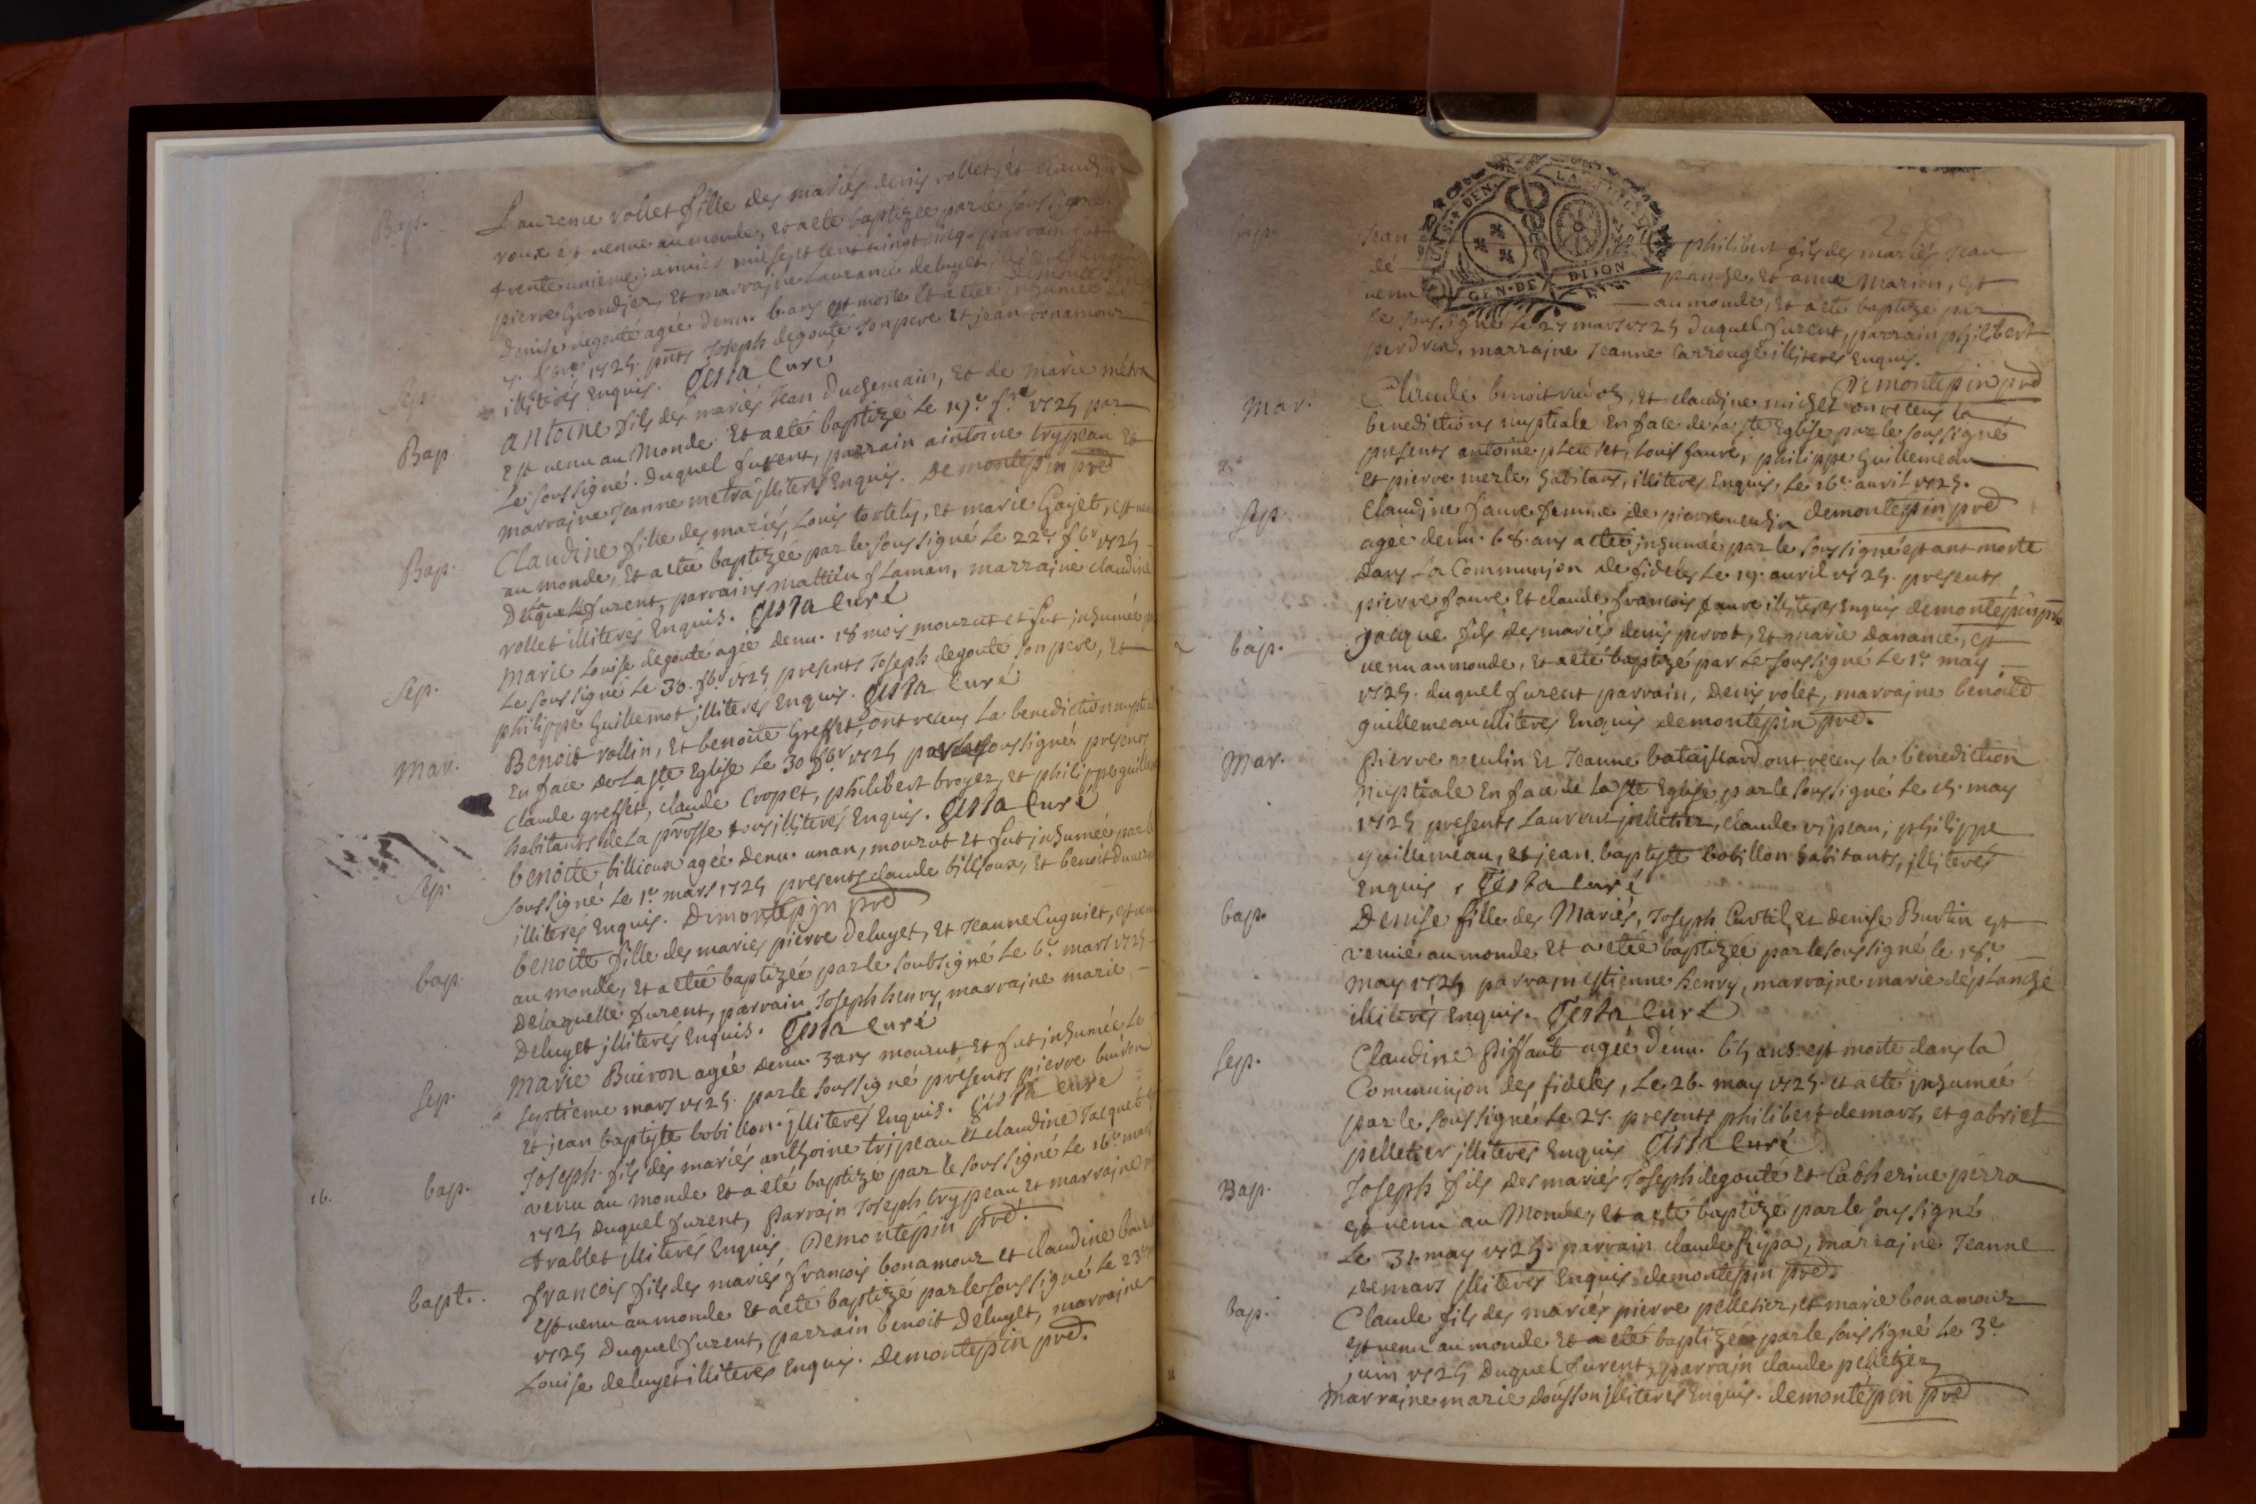 Bap. Laurence rollet fille des mariés denis rollet, et claudine
roux est venue au monde, et a eté baptizée par le soussigné
trente unieme janvier mil sept cent vingt cinq. parrain fut
pierre Grandjer, et marraine Laurance deluget
Denise degoute agée denu. 6 ans est morte et a eté inhumée
1725. pnts Joseph degouté son pere et jean bonamour
Sep. illiterés Enquis. Gista Curé
Bap. antoine fils des mariés Jean Duchemain, et de marie métra
Est venu au Monde Et a eté baptizé Le 19e fre 1725 par
Le soussigné. Duquel furent, parrain aintoine trypeau Et
marraine Jeanne metra jlliterés Enquis. Demontepin pre
Bap. Claudine fille des mariés, Louis tortely, et marie Gajet, est
au monde, Et a eté baptizéé par le soussigné Le 22e fbr 1725
Duquel furent, parrains mattieu flaman, marraine claudine
rollet illiterés Enquis. Gista Curé
Sep. Marie Louise degouté agée denu. 18 mois mourut et fut jnhumée
Le soussigné Le 30. fbr 1725 presents Joseph degouté son pere, Et
philippe Guillemot jlliterés Enquis. Gista Curé
Mar. Benoit rollin, Et benoite Greffet, ont receus La benediction nuptiale
En face de La ste Eglise Le 30 fbr 1725 par le soussigné presents
Claude greffet, claude Cropet, philibert broyer, et philippe guille
habitants de La prosse tous jlliterés Enquis. Gista Curé
Sep. benoite billioux agée denu. un an, mourut et fut jnhumée par le
soussigné Le 1er mars 1725 presents claude billioux, Et benoit
illiterés Enquis. Demontepin pre
bap. benoite fille des mariés pierre deluget, Et Jeanne Cuguiet, est
au monde, Et a eté baptizéé par le soubsigné Le 6e mars 1725
De laquelle furent, parrain Joseph henry, marrajne marie
Deluget jlliterés Enquis. Gista Curé
Sep. Marie Buiron agée denu. 3 ans mourut, et fut jnhumée Le
septieme mars 1725. par le soussigné presents pierre buiron
et jean baptiste bobillon. jlliterés Enquis. Gista Curé
16. bap. Joseph fils des mariés anthoine tripeau Et claudine Jacquet
venu au monde Et a eté baptizé par le soussigné Le 16e mars
1725 Duquel furent, Parrajn Joseph trypeau Et marrajne
trablet jlliterés Enquis. Demontepin pre.
bapt. francois fils des mariés francois bonamour et claudine
Est venu au monde Et a eté baptizé par le soussigné Le 23e
1725 Duquel furent, parrain benoit Deluget, marraine
Louise deluget illiterés Enquis. Demontepin pre.
GEN. DE DIJON
bap. Jean philibert fils des mariés Jean
dé panse et anne Marion, est
venu au monde, Et a eté baptizé par
Le soussigné Le 27 mars 1725 Duquel furent, parrain philibert
perdrix, marrajne Jeanne Carrouge illiteres Enquis.
Demontepin pre
Mar. Claude benoit, Et claudine michel on receus la
benedictions nuptiale En face de La ste Eglise par le soussigné
presents antoine, Louis faure, philippe Guillemeau
Et pierre merle habitans, illiteres Enquis, Le 16e avril 1725.
Sep. Claudine faure femme de pierre demontepin pre
agée denu. 68. ans a eté jnhumée par le soussigné estant morte
Dans La Communion de fideles Le 19. avril 1725. presents
pierre faure Et claude francois faure illiteres Enquis demontepin pre
bap. Jacque fils des mariés denis perrot, Et marie danance, est
venu au monde, Et a eté baptizé par Le soussigné Le 1er may
1725. duquel furent parrain, Denis rolet, marrajne benoite
guillemeau illiteres Enquis demontepin pre.
Mar. Pierre meulin Et Jeanne bataillard ont receus la benediction
Nuptiale En face de la ste Eglise, par le soussigné Le 15. may
1725 presents Laurent pelletier, claude ripeau, philippe
guillemeau, et jean baptiste bobillon habitants, jlliterés
Enquis, Gista Curé
bap. Denise fille des Mariés, Joseph Curtil, Et denise Burtin est
venuë au monde Et a eté baptizéé par le soussigné le 18e
may 1725 parrajn Estienne henry, marrajne marie déplanche
illiterés Enquis. Gista Curé
Sep. Claudine Piffaut agée denu. 65 ans est morte dans la
Communjon des fideles, Le 26. may 1725. et a eté jnhumée
par le soussigné Le 27. presents philibert demars, et gabriel
pelletier jlliteres Enquis Gista Curé
Bap. Joseph fils des mariés Joseph degouté Et Catherine perra
est venu au Monde, Et a eté baptizé par le soussigné
Le 31. may 1725. parrain claude Ripa, marrajne Jeanne
demars jlliterés Enquis demontepin pre.
bap. Claude fils des mariés pierre pelletier, et marie bonamour
est venu au monde Et a eté baptizé par le soussigné Le 3e
juin 1725 Duquel furent, parrajn claude pelletier,
marrajne marie jlliteres Enquis. demontepin pre